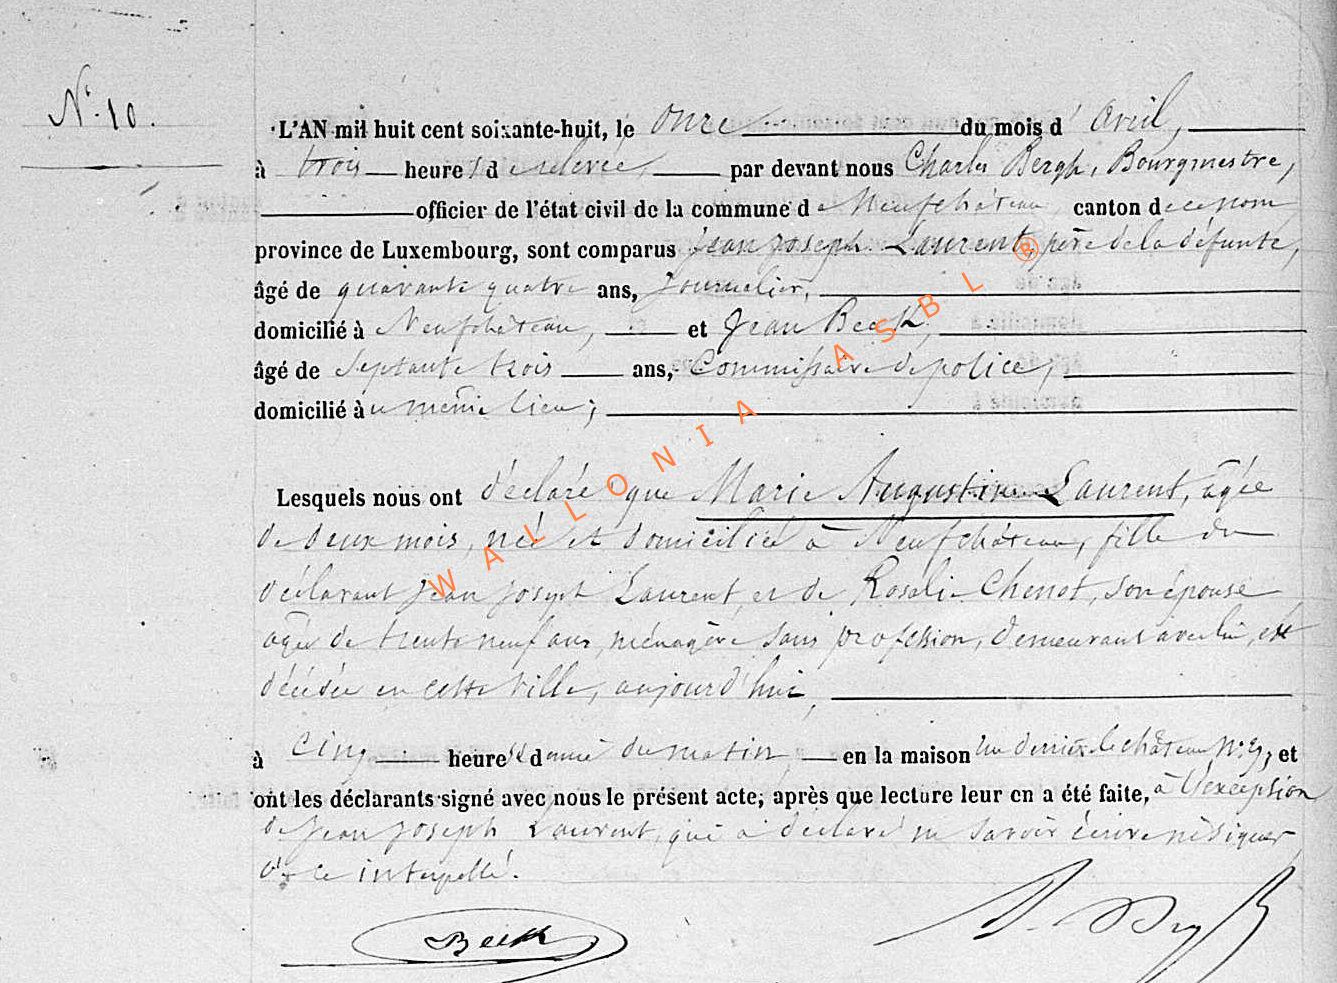 N° 10.
L'AN mil huit cent soixante-huit, le onze du mois d'avril,
à trois heures de relevée, par devant nous Charles Bergh, Bourgmestre,
officier de l'état civil de la commune de Neufchâteau canton de ce nom
province de Luxembourg, sont comparus Jean Joseph Laurent, père de la défunte,
âgé de quarante quatre ans, Journalier,
domicilié à Neufchâteau, et Jean Beck,
âgé de Septante trois ans, Commissaire de police,
domicilié au même lieu;
WALLONIA ASBL ®
Lesquels nous ont déclaré que Marie Augustine Laurent, âgée
de deux mois, née et domiciliée à Neufchâteau, fille du
déclarant Jean Joseph Laurent et de Rosalie Chenot, son épouse
âgée de trente neuf ans, ménagère sans profession, demeurant avec lui, est
décédée en cette ville, aujourd'hui,
à cinq heures du matin, en la maison derrière le château n° et
ont les déclarants signé avec nous le présent acte, après que lecture leur en a été faite, à l'exception
de Jean Joseph Laurent, qui a déclaré ne savoir écrire ni signer
de ce interpellé.
Beck